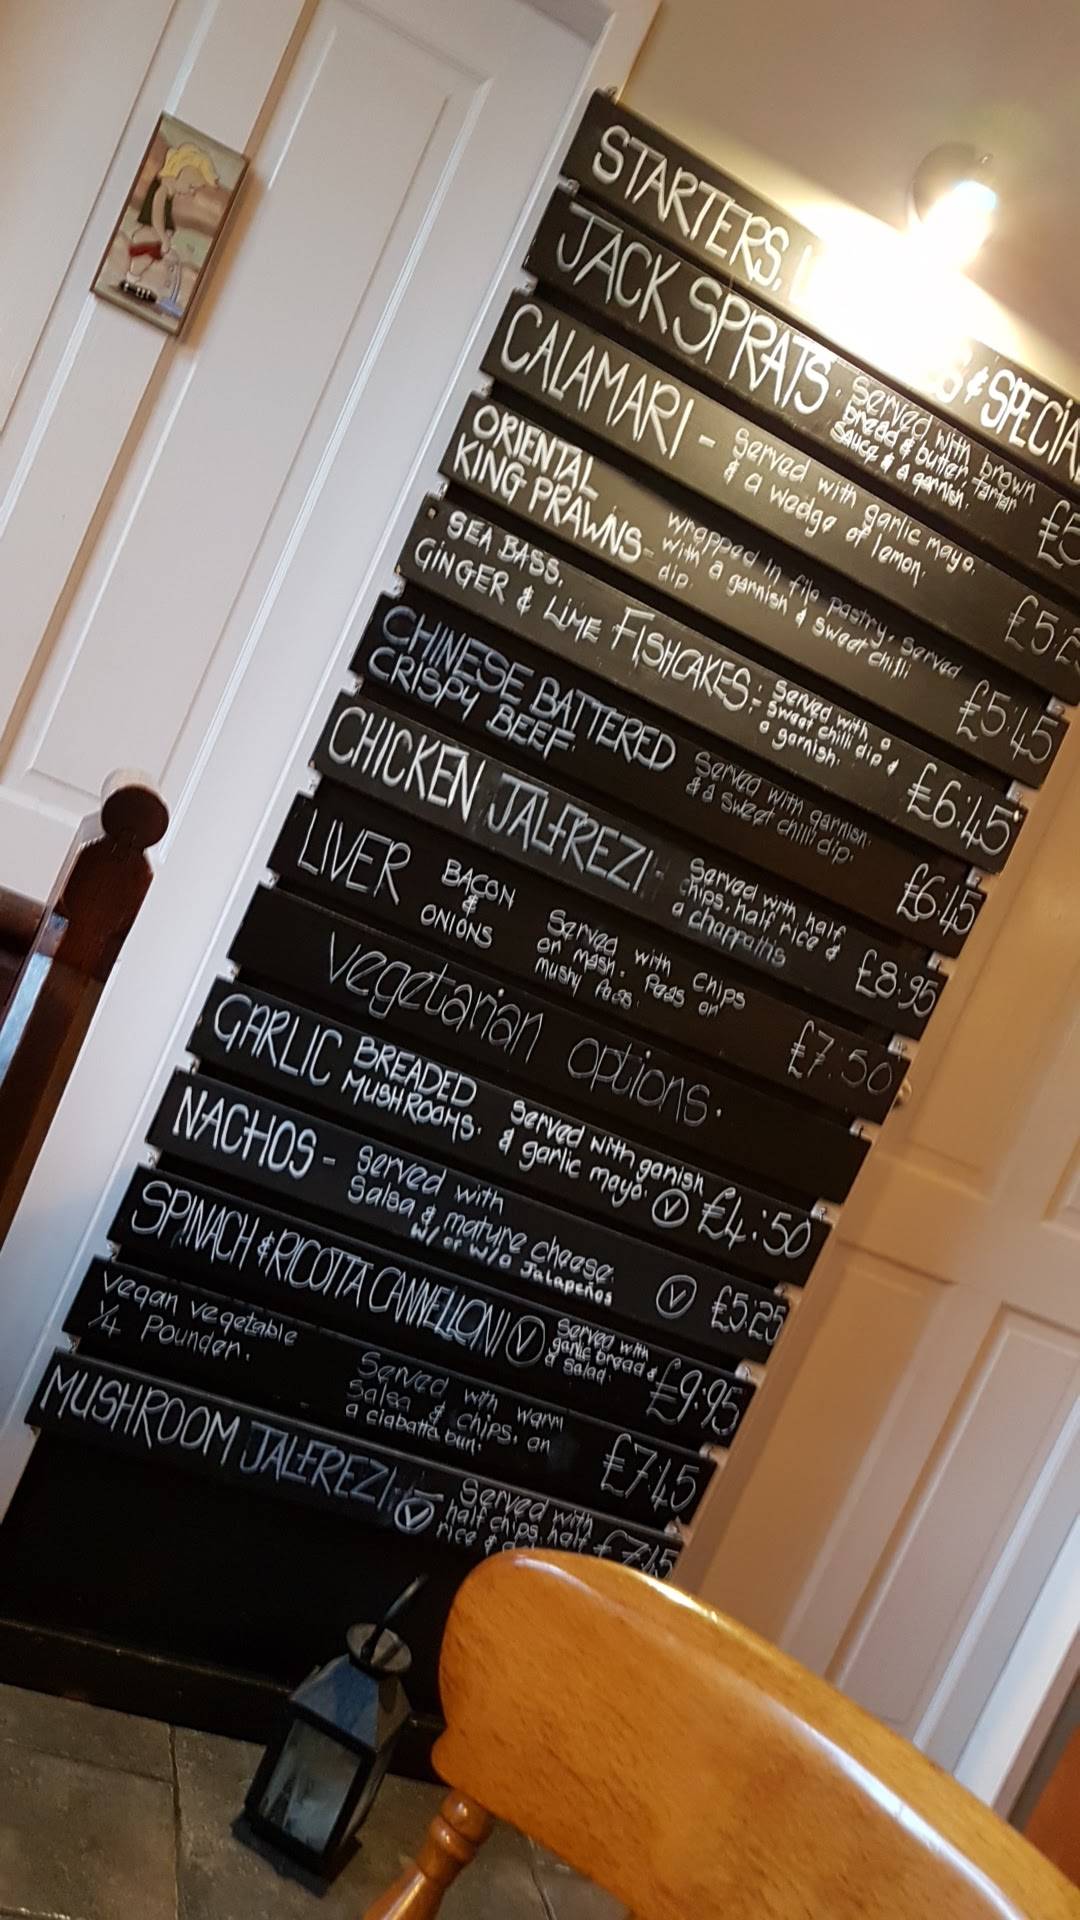 STARTERS, & SPECIA
JACK SPRATS. Served with brown
bread & butter, tartar
sauce & a garnish. £5
CALAMARI - Served with garlic mayo.
& a wedge of lemon. £5:25
ORIENTAL
KING PRAWNS- wrapped in filo pastry, served
with a garnish & sweet chilli
dip. £5:45
SEA BASS,
GINGER & LIME FISHCAKES: Served with a
sweet chilli dip &
a garnish. £6:45
CHINESE BATTERED
CRISPY BEEF. Served with garnish
& a sweet chilli dip. £6:45
CHICKEN JALFREZI - Served with half
chips, half rice &
a chappathis £8:95
LIVER BACON
&
ONIONS Served with chips
or mash. Peas or
mushy Peas. £7:50
vegetarian options.
GARLIC BREADED
MUSHROOMS. Served with ganish
& garlic mayo. V £4:50
NACHOS - Served with
Salsa & mature cheese.
w/ or w/o Jalapeños V £5:25
SPINACH & RICOTTA CANNELLONI V Served with
garlic bread &
a salad. £9:95
vegan vegetable
1/4 Pounder. Served with warm
Salsa & chips, on
a ciabatta bun. £7:45
MUSHROOM JALFREZI - V Served with
half chips, half
rice & £7:45